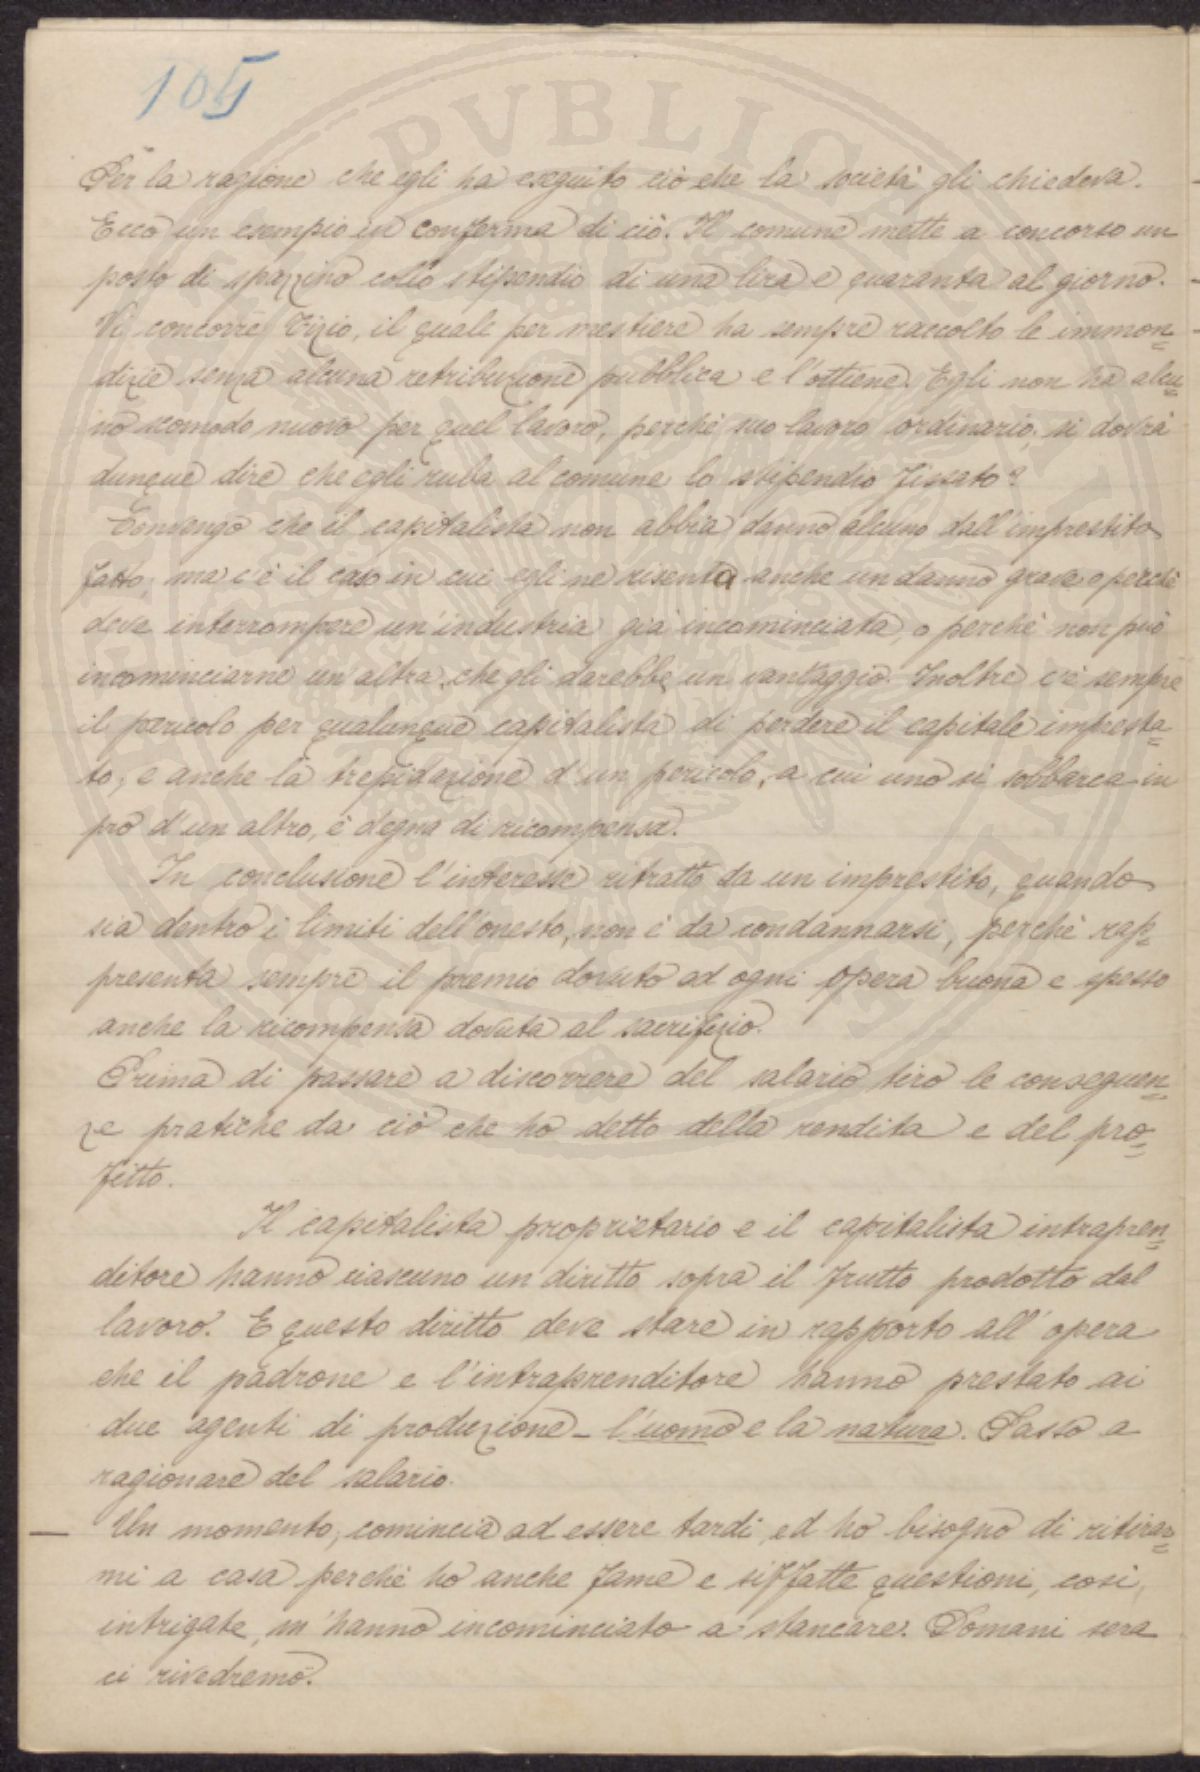 105
Per la ragione che egli ha eseguito ciò che la società gli chiedeva.
Ecco un esempio in conferma di ciò. Il comune mette a concorso un
posto di spazzino collo stipendio di una lira e quaranta al giorno.
Vi concorre Tizio, il quale per mestiere ha sempre raccolto le immon=
dizie senza alcuna retribuzione pubblica e l'ottiene. Egli non ha alcu=
no scomodo nuovo per quel lavoro, perchè suo lavoro ordinario; si dovrà
dunque dire che egli ruba al comune lo stipendio fissato?
Convengo che il capitalista non abbia danno alcuno dall'imprestito
fatto; ma c'è il caso in cui egli ne risenta anche un danno grave o perchè
deve interrompere un'industria già incominciata, o perchè non può
incominciarne un'altra, che gli darebbe un vantaggio. Inoltre c'è sempre
il pericolo per qualunque capitalista di perdere il capitale impresta=
to; e anche la trepidazione d'un pericolo, a cui uno si sobbarca in
prò d'un altro, è degna di ricompensa.
In conclusione l'interesse ritratto da un imprestito, quando
sia dentro i limiti dell'onesto, non è da condannarsi, perchè rap=
presenta sempre il premio dovuto ad ogni opera buona e spesso
anche la ricompensa dovuta al sacrifizio.
Prima di passare a discorrere del salario tiro le conseguen=
ze pratiche da ciò che ho detto della rendita e del pro=
fitto.
Il capitalista proprietario e il capitalista intrapren=
ditore hanno ciascuno un diritto sopra il frutto prodotto dal
lavoro. E questo diritto deve stare in rapporto all'opera
che il padrone e l'intraprenditore hanno prestato ai
due agenti di produzione - l'uomo e la natura. Passo a
ragionare del salario.
— Un momento; comincia ad essere tardi, ed ho bisogno di ritirar=
mi a casa perchè ho anche fame e siffatte questioni, così,
intrigate, m'hanno incominciato a stancare. Domani sera
ci rivedremo.